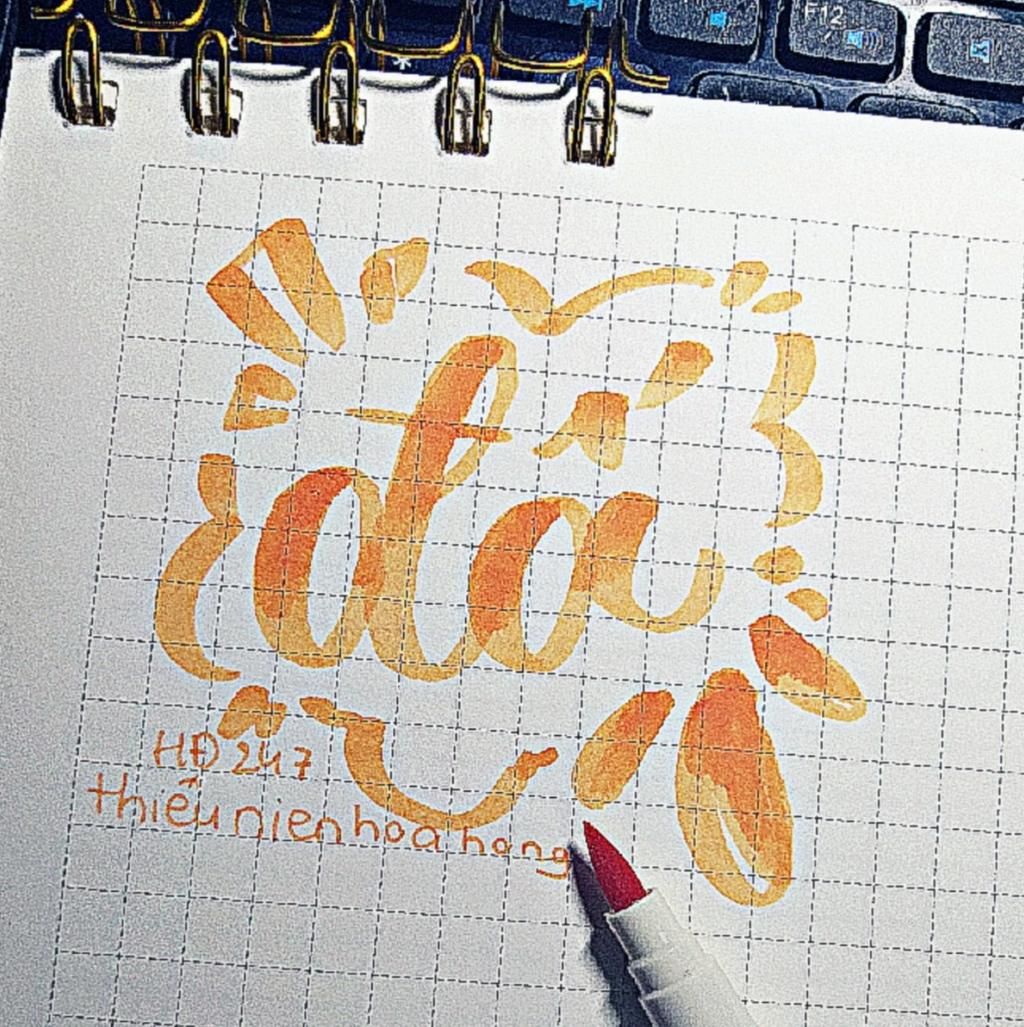 F12
đối
HĐ 247
thiếu nien hoa hong